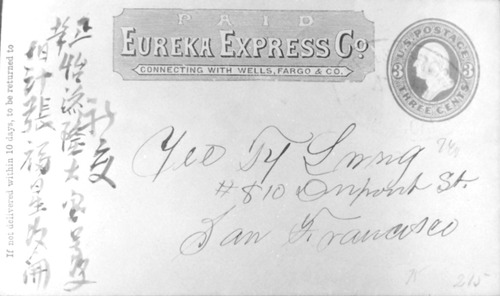 If not delivered within 10 days, to be returned to
PAID
EUREKA EXPRESS CO
CONNECTING WITH WELLS, FARGO & CO.
U.S. POSTAGE
3 3
THREE CENTS
Yee Ty Lung
#810 Dupont St.
San Francisco
怡 隆大
張福
215